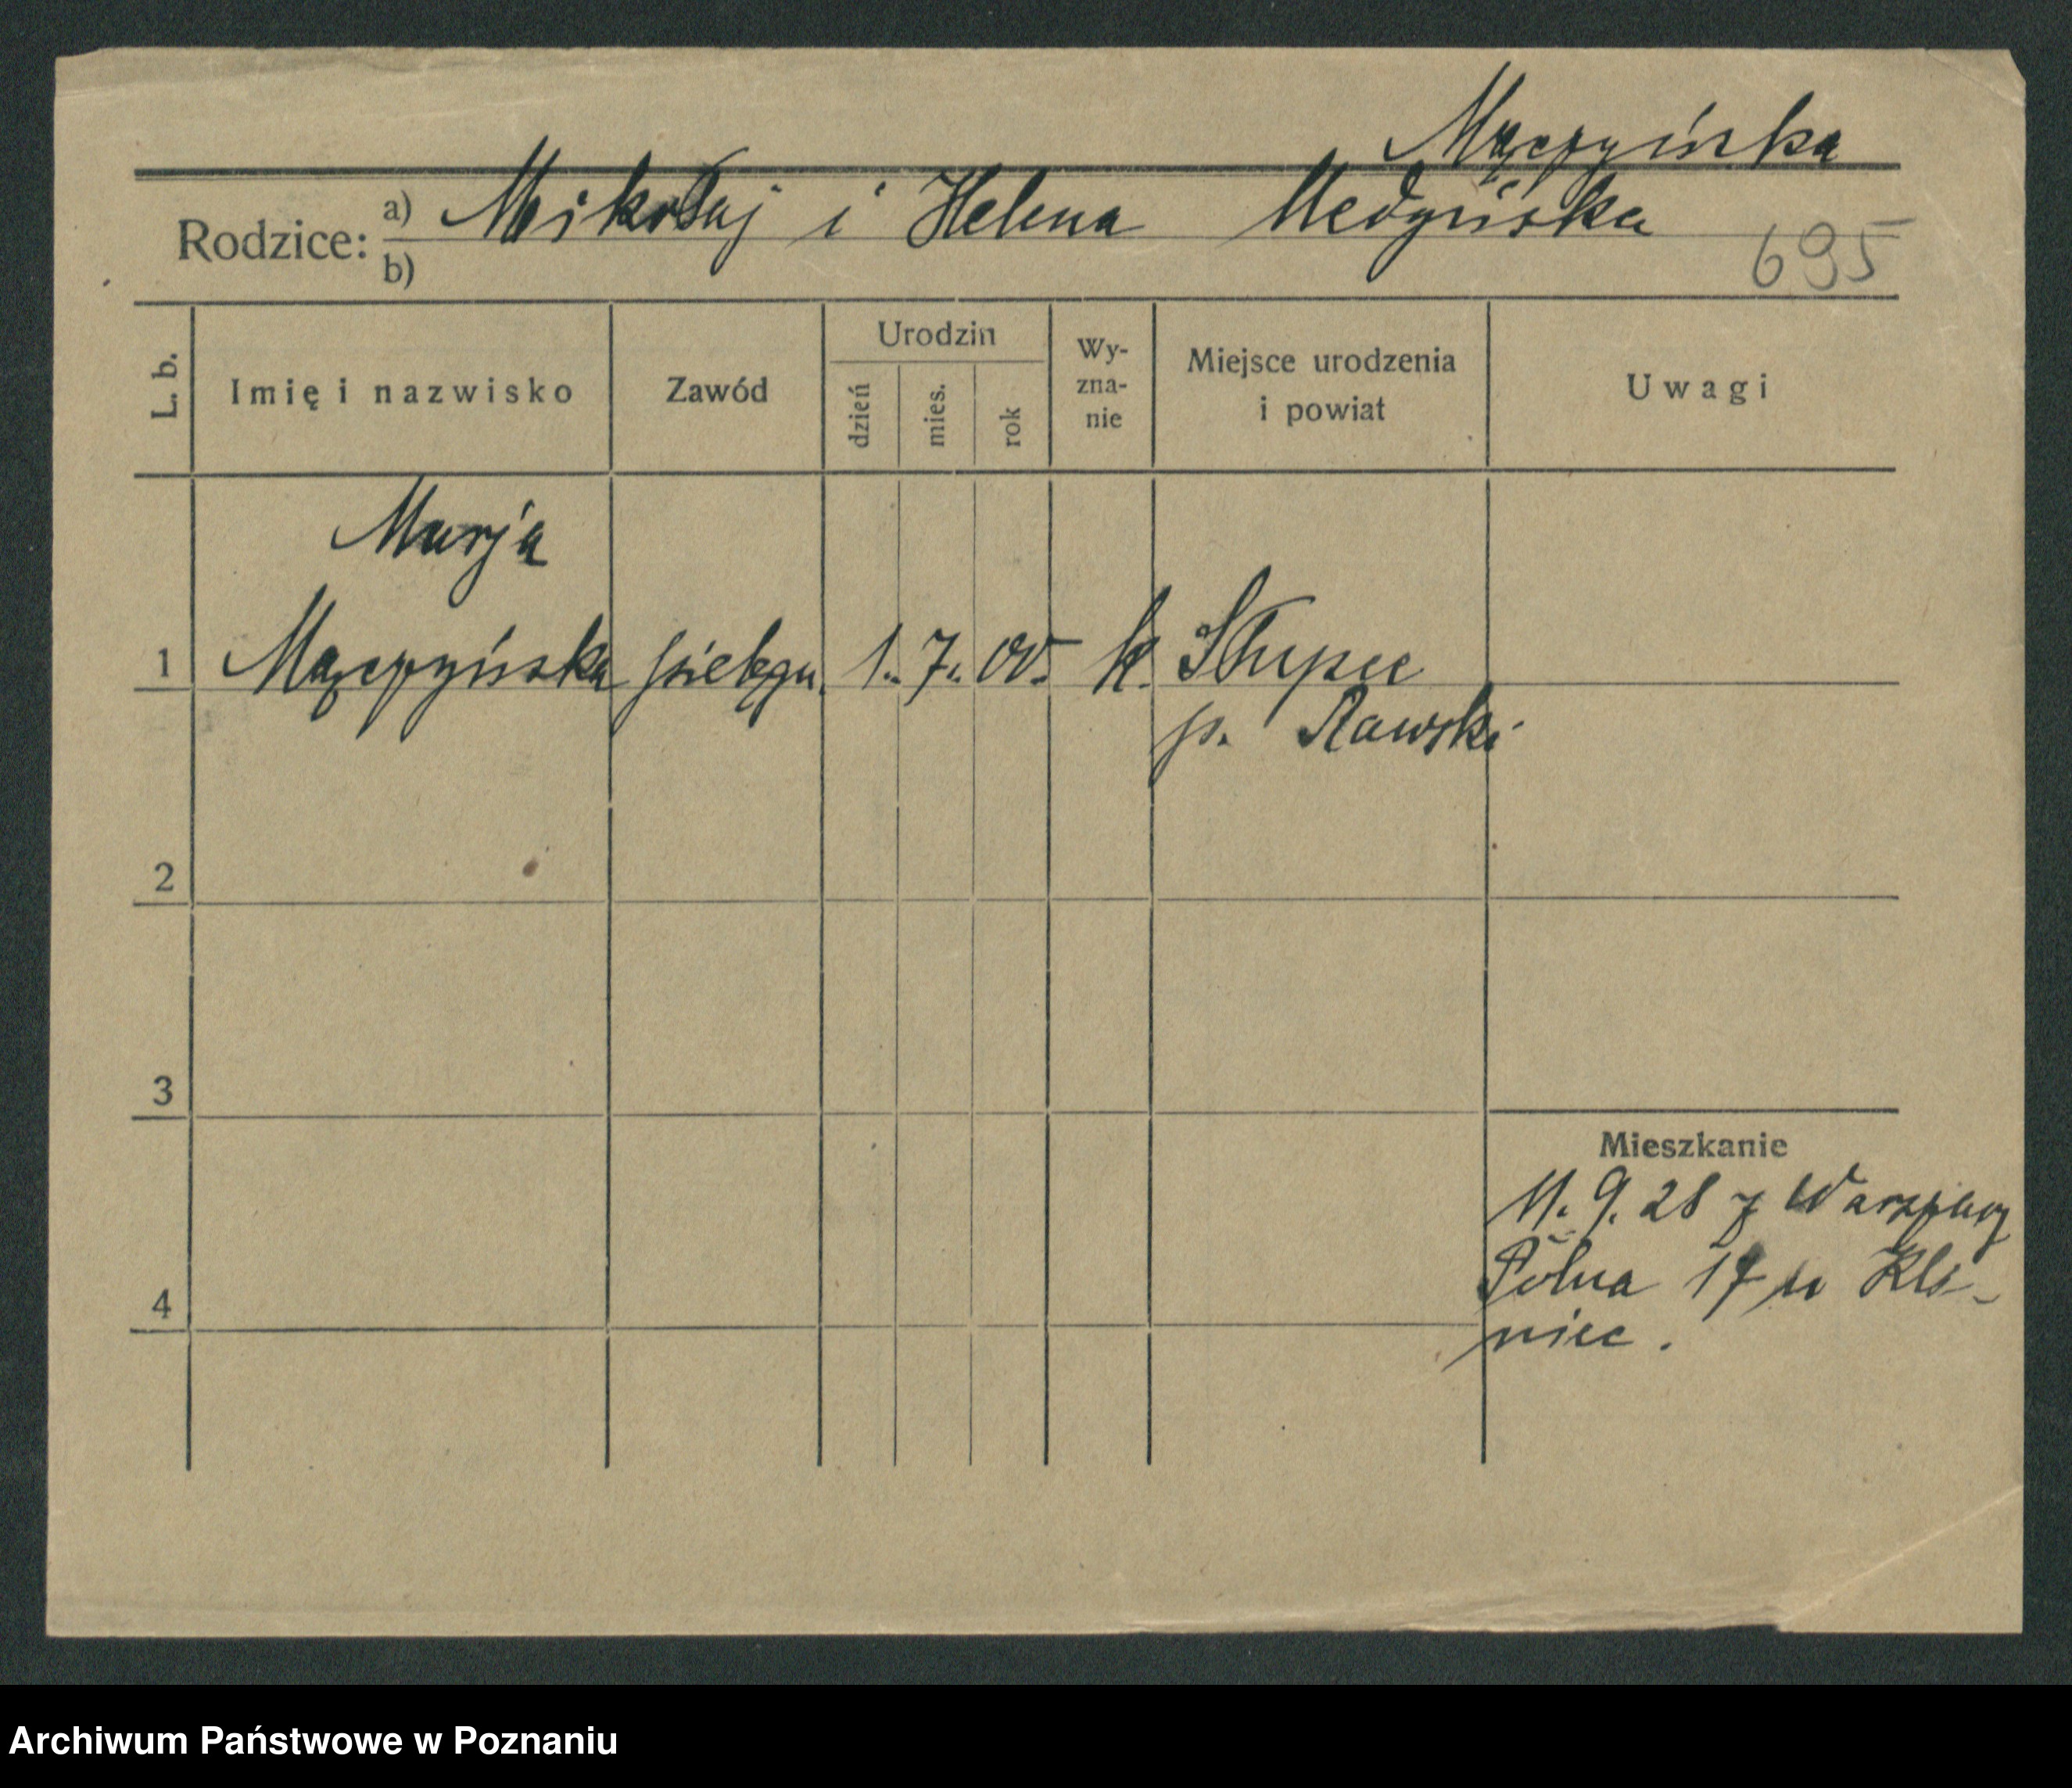 Mączyńska
Rodzice: a) Mikołaj i Helena Medyńska
b)
695
L. b. Imię i nazwisko Zawód Urodzin dzień mies. rok Wy-zna-nie Miejsce urodzenia i powiat Uwagi
Marja
1 Mączyńska pielęgn. 1. 7. 00. k. Słupce
p. Rawski
2
3
Mieszkanie
11. 9. 28 z Warszawy
4 Polna 17 u
niec.
Archiwum Państwowe w Poznaniu